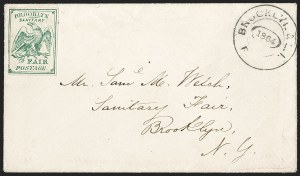 BROOKLYN
SANITARY
FAIR
POSTAGE
BROOKLYN, L.I.
1864
Mr. Sam'l M. Welch,
Sanitary Fair,
Brooklyn,
N. Y.